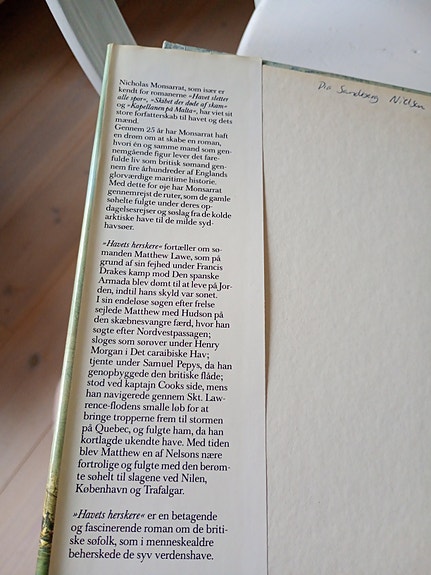 Nicholas Monsarrat, som især er
kendt for romanerne »Havet sletter
alle spor«, »Skibet der døde af skam«
og »Kapellanen på Malta«, har viet sit
store forfatterskab til havet og dets
mænd.
Gennem 25 år har Monsarrat haft
en drøm om at skabe en roman,
hvori én og samme mand som gen-
nemgående figur lever det fare-
fulde liv som britisk sømand gen-
nem fire århundreder af Englands
glorværdige maritime historie.
Med dette for øje har Monsarrat
gennemrejst de ruter, som de gamle
søhelte fulgte under deres op-
dagelsesrejser og søslag fra de kolde
arktiske have til de milde syd-
havsøer.
»Havets herskere« fortæller om sø-
manden Matthew Lawe, som på
grund af sin fejhed under Francis
Drakes kamp mod Den spanske
Armada blev dømt til at leve på Jor-
den, indtil hans skyld var sonet.
I sin endeløse søgen efter frelse
sejlede Matthew med Hudson på
den skæbnesvangre færd, hvor han
søgte efter Nordvestpassagen;
sloges som sørøver under Henry
Morgan i Det caraibiske Hav;
tjente under Samuel Pepys, da han
genopbyggede den britiske flåde;
stod ved kaptajn Cooks side, mens
han navigerede gennem Skt. Law-
rence-flodens smalle løb for at
bringe tropperne frem til stormen
på Quebec, og fulgte ham, da han
kortlagde ukendte have. Med tiden
blev Matthew en af Nelsons nære
fortrolige og fulgte med den berøm-
te søhelt til slagene ved Nilen,
København og Trafalgar.
»Havets herskere« er en betagende
og fascinerende roman om de briti-
ske søfolk, som i menneskealdre
beherskede de syv verdenshave.
Pia Sandberg Nielsen